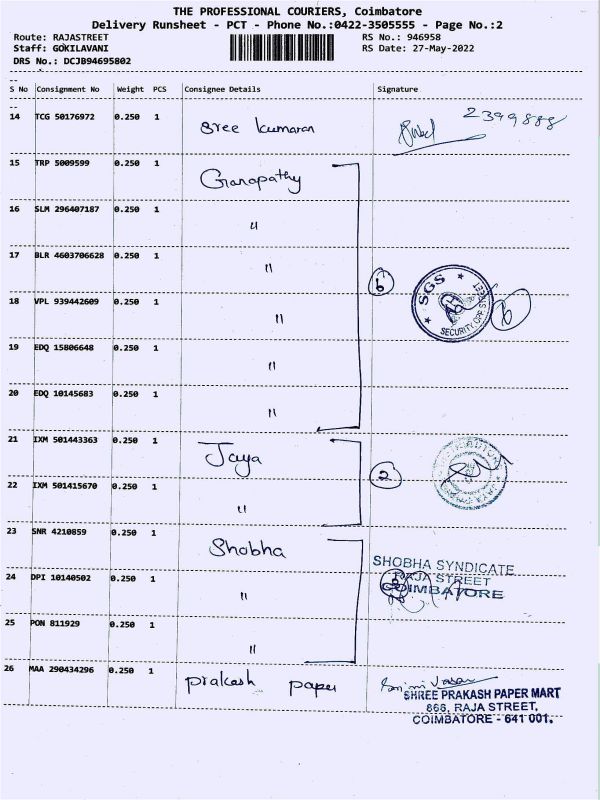 THE PROFESSIONAL COURIERS, Coimbatore
Delivery Runsheet - PCT - Phone No.:0422-3505555 - Page No.:2
Route: RAJASTREET RS No.: 946958
Staff: GOKILAVANI RS Date: 27-May-2022
DRS No.: DCJB94695802
S No Consignment No Weight PCS Consignee Details Signature
14 TCG 50176972 0.250 1 Sree Kumaran 2399888
15 TRP 5009599 0.250 1 Ganapathy
16 SLM 296407187 0.250 1 "
17 BLR 4603706628 0.250 1 "
6 SGS SECURITY, OPP STREET 6
18 VPL 939442609 0.250 1 "
19 EDQ 15806648 0.250 1 "
20 EDQ 10145683 0.250 1 "
21 IXM 501443363 0.250 1 Jaya
2
22 IXM 501415670 0.250 1 "
23 SNR 4210859 0.250 1 Shobha
SHOBHA SYNDICATE
RAJA STREET
COIMBATORE
24 DPI 10140502 0.250 1 "
25 PON 811929 0.250 1 "
26 MAA 290434296 0.250 1 prakash paper
SHREE PRAKASH PAPER MART
866, RAJA STREET,
COIMBATORE - 641 001.